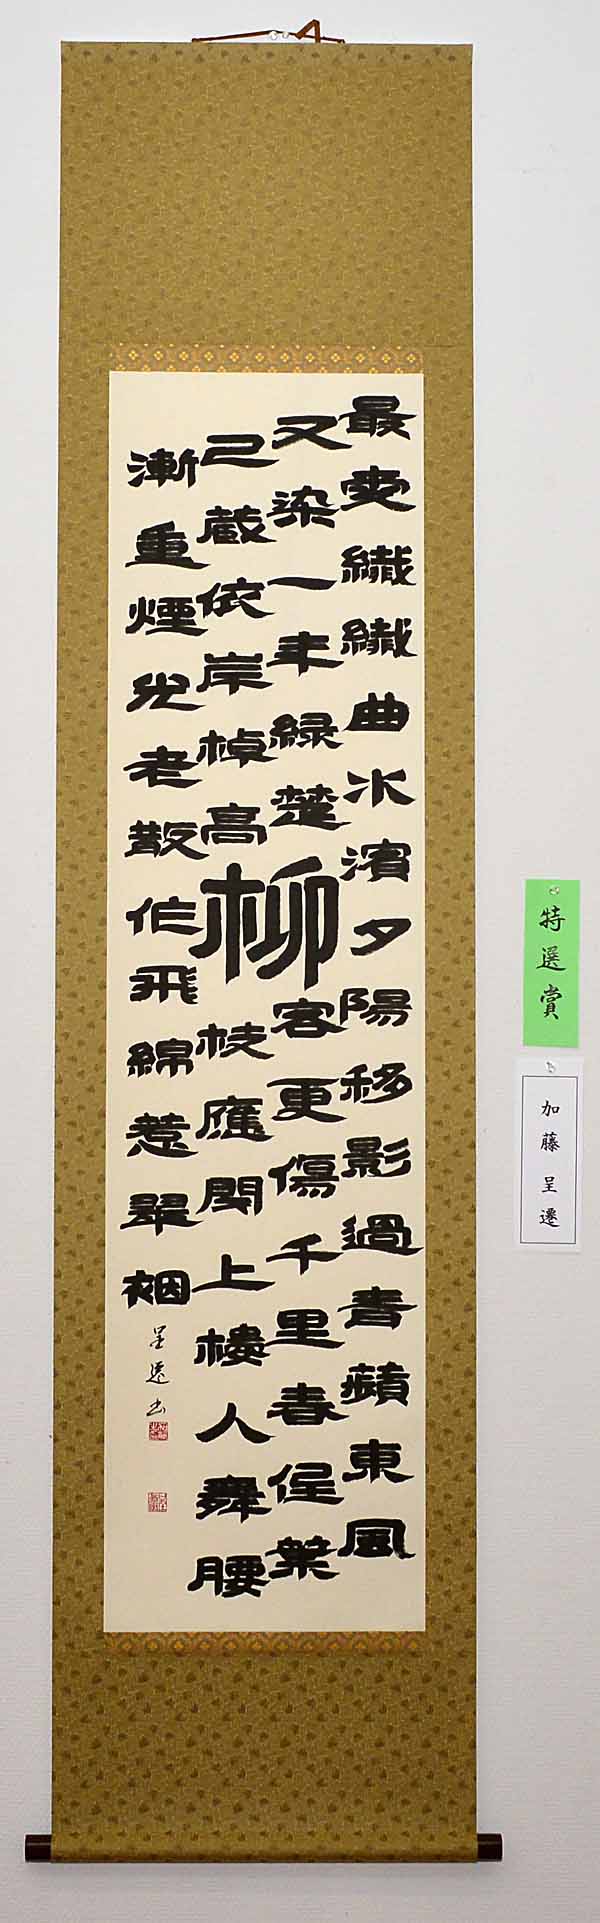 最愛纖纖曲水濱夕陽移影過青蘋東風
又染一年綠楚客更傷千里春低葉
柳
已藏依岸棹高枝應閉上樓人舞腰
漸重煙光老散作飛綿惹翠裀
呈遷书
特選賞
加藤呈遷